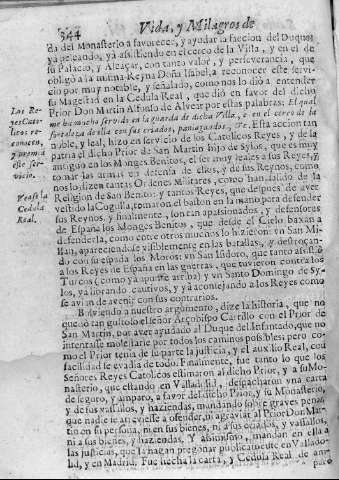 344
Vida, y Milagros de
da del Monasterio a favorecer, y ayudar la faccion del Duque,
ya peleando, yà assistiendo en el cerco de la Villa, y en el de
su Palacio, y Alcaçar, con tanto valor, y perseverancia, que
obligò a la misma Reyna Doña Isabel a reconocer este servi-
cio por muy notable, y señalado, como nos lo diò a entender
su Magestad en la Cedula Real, que diò en favor del dicho
Prior Don Martin Alonso de Alvear por estas palabras: El qual
me ha mucho servido en la guarda de dicha Villa, e en el cerco de la
fortaleza de ella con sus criados, paniaguados, &c. Esta accion tan
noble, y leal, hizo en servicio de los Catolicos Reyes, y de la
patria el dicho Prior de San Martin hijo de Sylos, que es muy
antiguo en los Monges Benitos, el ser muy leales a sus Reyes,
tomar las armas en defensa de ellos, y de sus Reynos, como
nos lo dizen tantas Ordenes Militares, como han salido de la
Religion de San Benito: y tantos Reyes, que despues de aver
vestido la Cogulla, tomaron el baston en la mano para defender
sus Reynos. y finalmente, son tan apasionados, y defensores
de España los Monges Benitos, que desde el Cielo baxan a
defenderla, como entre otros muchos lo hizieron: vn San Mi-
llan, apareciendose visiblemente en las batallas, y destroçan-
do con su espada los Moros: vn San Isidoro, que tanto assistiò
a los Reyes de España en las guerras, que tuvieron contra los
Turcos (como ya apunte arriba) y vn Santo Domingo de Sy-
los, ya librando cautivos, y yà aconsejando a los Reyes como
se avian de avenir con sus contrarios.
Bolviendo a nuestro argumento, dize la historia, que no
quedò tan gustoso el señor Arçobispo Carrillo con el Prior de
San Martin, por aver ayudado al Duque del Infantado, que no
intentasse molestarle por todos los caminos possibles; pero co-
mo el Prior tenia de su parte la justicia, y el auxilio Real, con
facilidad se evadia de todo. Finalmente, fue tanto lo que los
Señores Reyes Catolicos estimaron al dicho Prior, y a su Mo-
nasterio, que estando en Valladolid, despacharon vna carta
de seguro, y amparo, a favor del dicho Prior, y su Monasterio,
y de sus vassallos, y haziendas, mandando sobre graves penas,
que nadie se atreviesse a ofender, ni agraviar al Prior Don Mar-
tin en su persona, ni en sus bienes, ni a sus criados, y vassallos,
ni a sus bienes, y haziendas. Y assimismo, mandan en ella a
las justicias, que la hagan pregonar publicamente en Vallado-
lid, y en Madrid. Fue hecha la carta, y Cedula Real de am-
paro
Los Re-
yes Cato-
licos re-
conocen,
y premiã
este ser-
vicio.
Vease la
Cedula
Real.